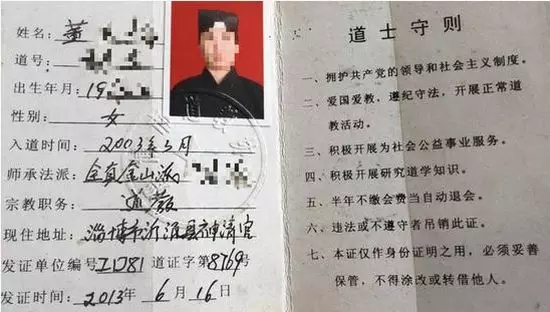 姓名：董
道号：
出生年月：19
性别：女
入道时间：2003年5月
师承法派：全真金山派
宗教职务：道教
现住地址：淄博市沂源县神清宫
发证单位编号 道证字第8769号
发证时间：2013年6月16日
道士守则
一、拥护共产党的领导和社会主义制度。
二、爱国爱教、遵纪守法，开展正常道
教活动。
三、积极开展为社会公益事业服务。
四、积极开展研究道学知识。
五、半年不缴会费当自动退会。
六、违法或不遵守者吊销此证。
七、本证仅作身份证明之用，必须妥善
保管，不得涂改或转借他人。